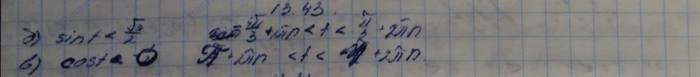 13.43.
г) sin t < √3/2 π/3 + πn < t < π/3 + 2πn
в) cos t < 0 π + 2πn < t < + 2πn.